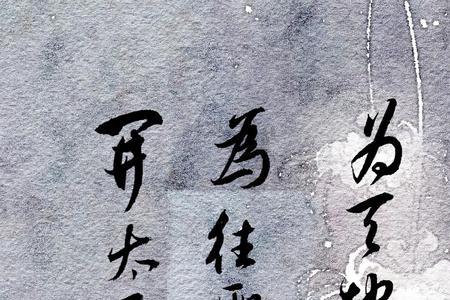 为天
為往
開太